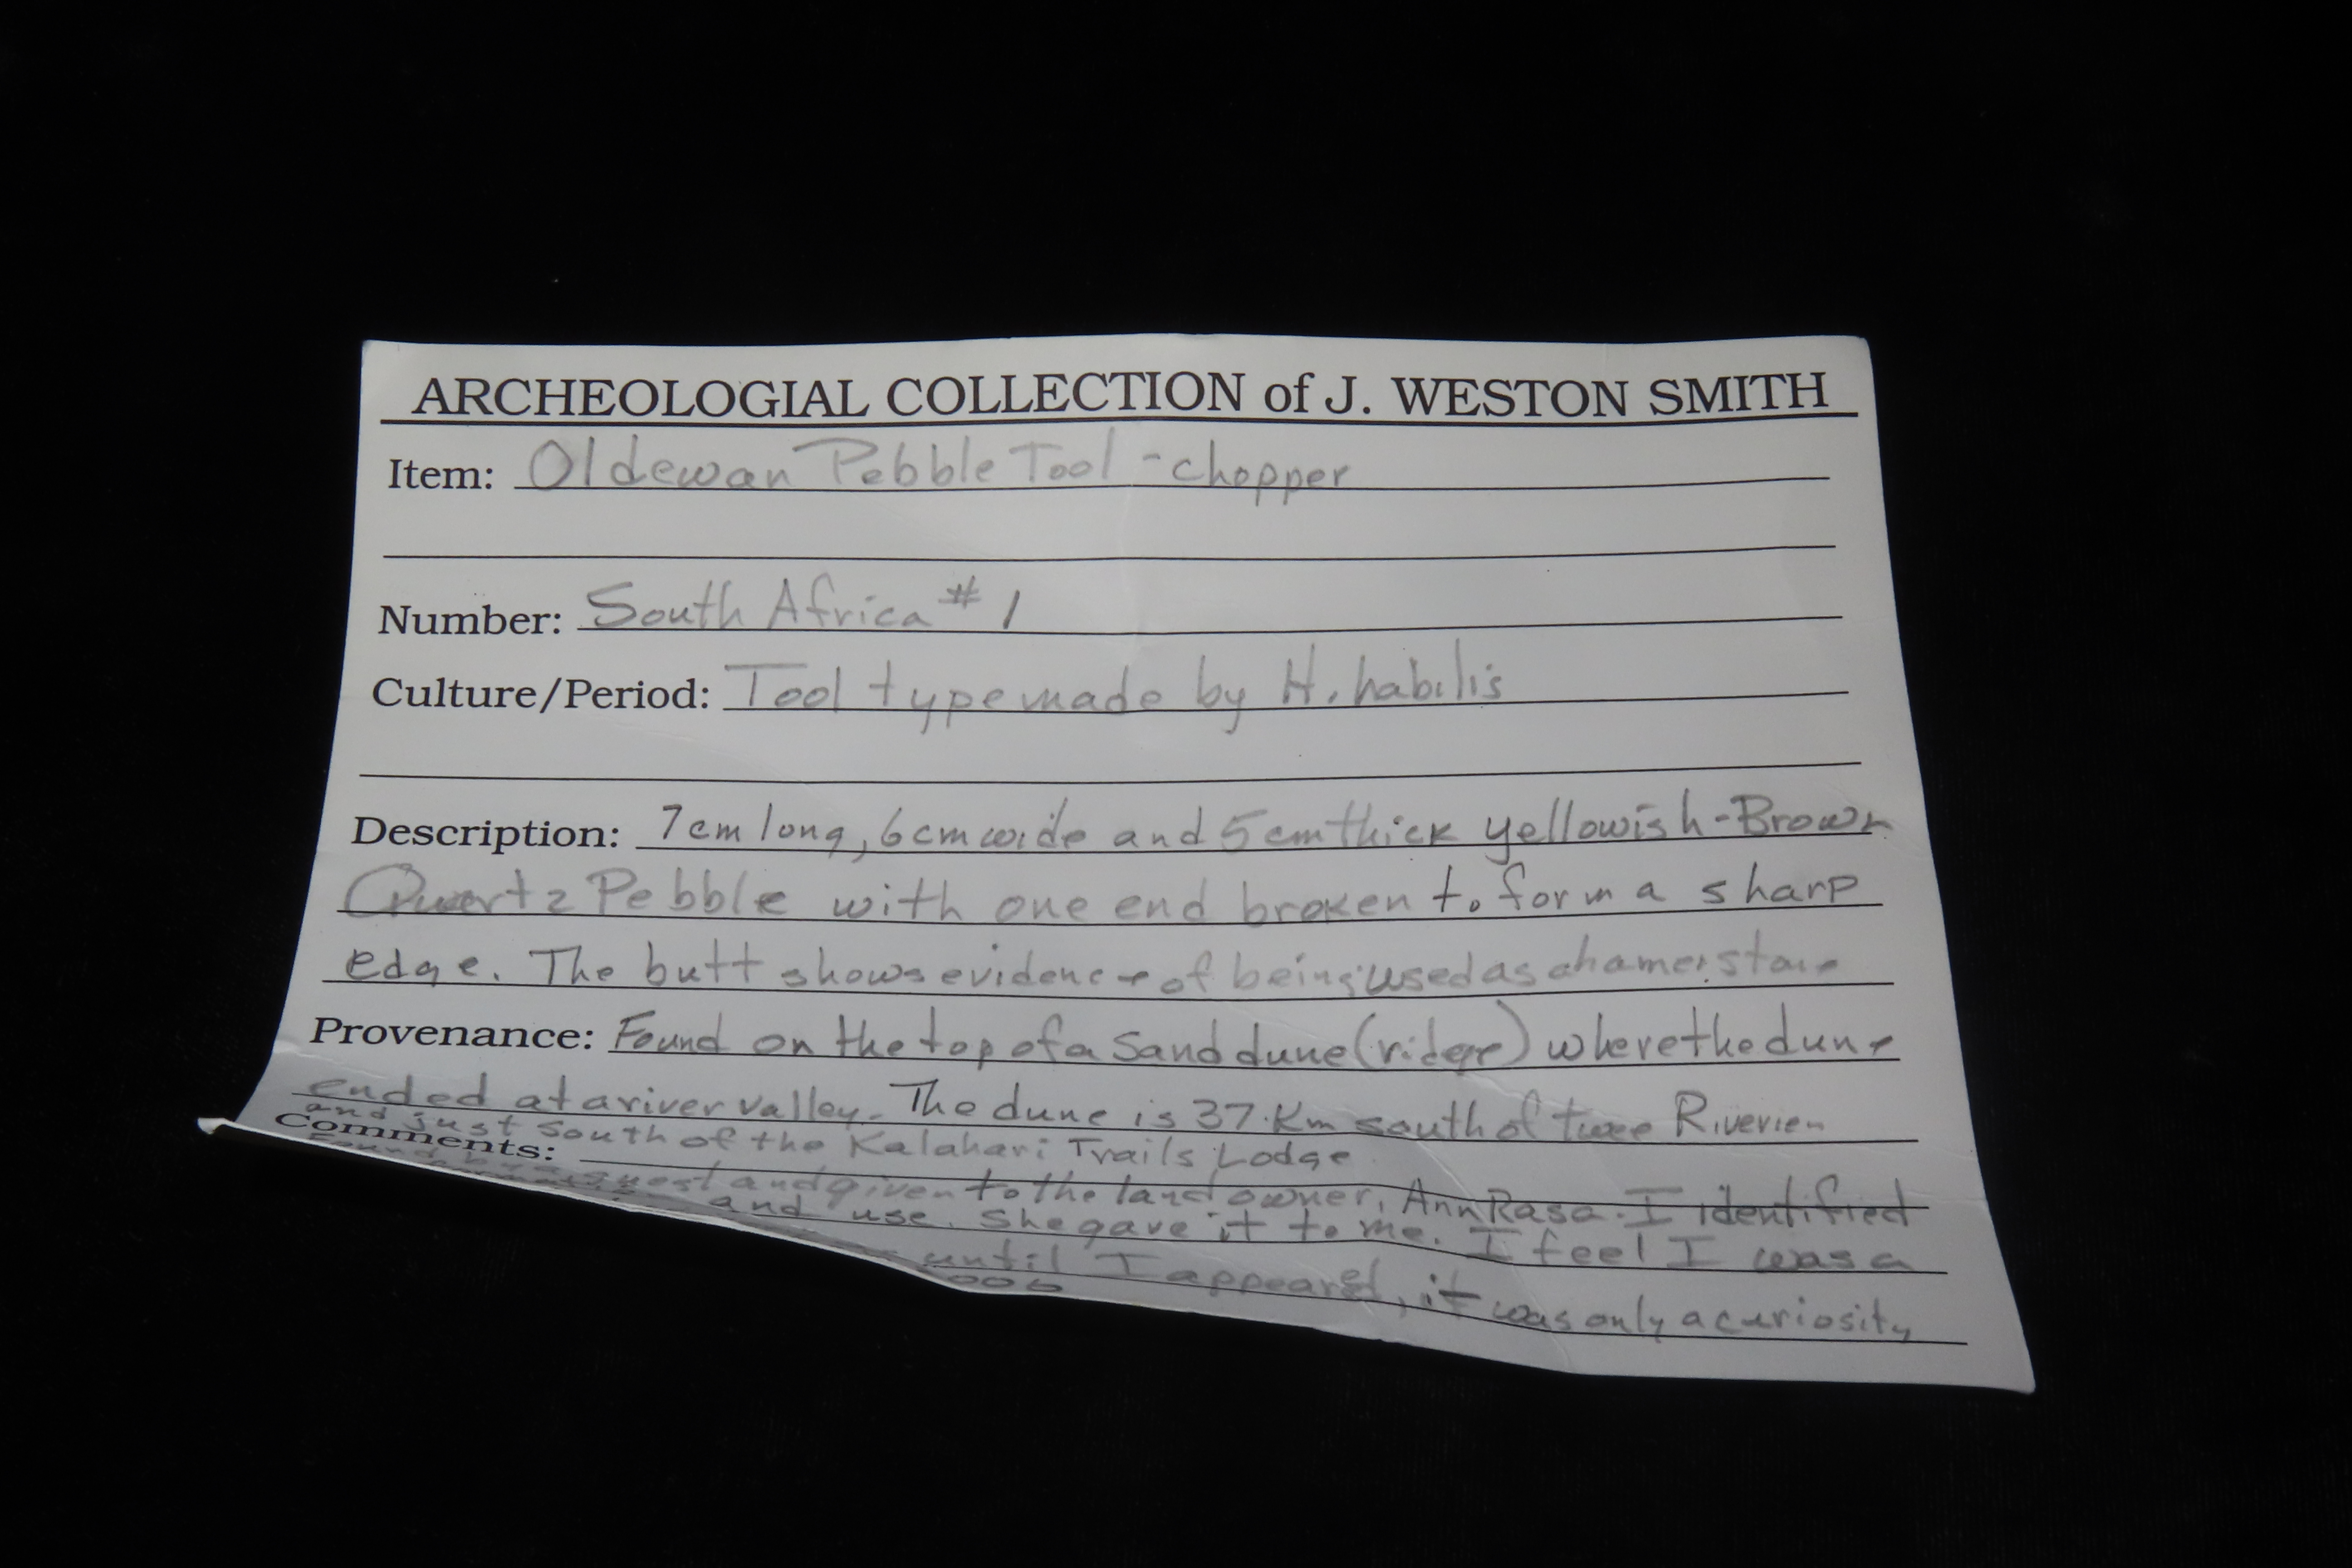 ARCHEOLOGIAL COLLECTION of J. WESTON SMITH
Item: Oldewan Pebble Tool - chopper
Number: South Africa # 1
Culture/Period: Tool type made by H. habilis
Description: 7cm long, 6cm wide and 5cm thick yellowish-Brown
Quartz Pebble with one end broken to form a sharp
edge. The butt shows evidence of being used as a hamerstone
Provenance: Found on the top of a sand dune (ridge) where the dune
ended at a river valley. The dune is 37 Km south of twee Rivieren
and just south of the Kalahari Trails Lodge
Comments:
Found by a guest and given to the land owner, Ann Rasa. I identified
and use. She gave it to me. I feel I was a
until I appeared, it was only a curiosity